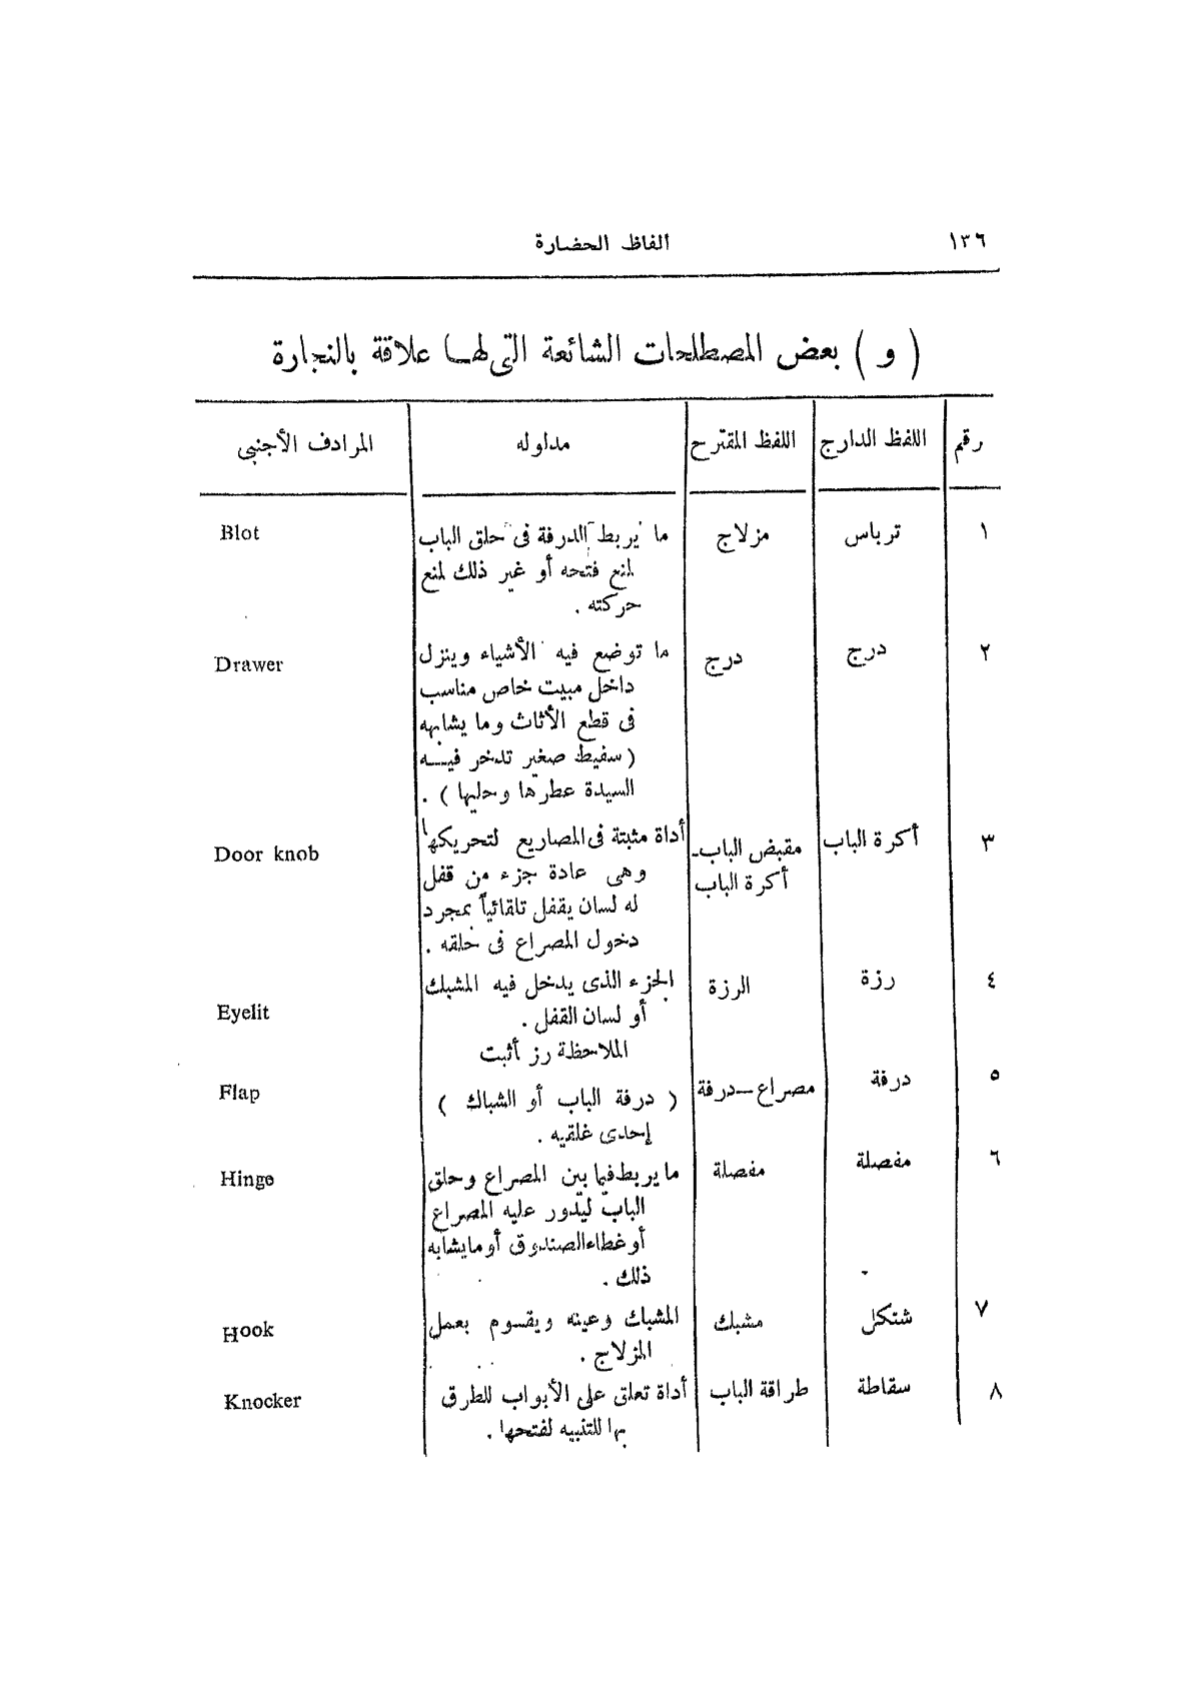 ١٣٦
ألفاظ الحضارة
( و ) بعض المصطلحات الشائعة التى لهـا علاقة بالنجارة
رقم اللفظ الدارج اللفظ المقترح مدلوله المرادف الأجنبى
١ ترباس مزلاج ما يربط الدرفة فى حلق الباب Blot
لمنع فتحه أو غير ذلك لمنع
حركته .
٢ درج درج ما توضع فيه الأشياء وينزل Drawer
داخل مبيت خاص مناسب
فى قطع الأثاث وما يشابهه
( سفيط صغير تدخر فيـه
السيدة عطرها وحليها ) .
٣ أكرة الباب مقبض الباب- أداة مثبتة فى المصاريع لتحريكها Door knob
أكرة الباب وهى عادة جزء من قفل
له لسان يقفل تلقائياً بمجرد
دخول المصراع فى حلقه .
٤ رزة الرزة الجزء الذى يدخل فيه المشبك
أو لسان القفل . Eyelit
الملاحظة رز أثبت
٥ درفة مصراع–درفة ( درفة الباب أو الشباك ) Flap
إحدى غلقيه .
٦ مفصلة مفصلة ما يربط فيما بين المصراع وحلق Hinge
الباب ليدور عليه المصراع
أو غطاء الصندوق أو ما يشابه
ذلك .
٧ شتكل مشبك المشباك وعينه ويقسوم بعمل Hook
المزلاج .
٨ سقاطة طراقة الباب أداة تعلق على الأبواب للطرق Knocker
بها للتنبيه لفتحها .